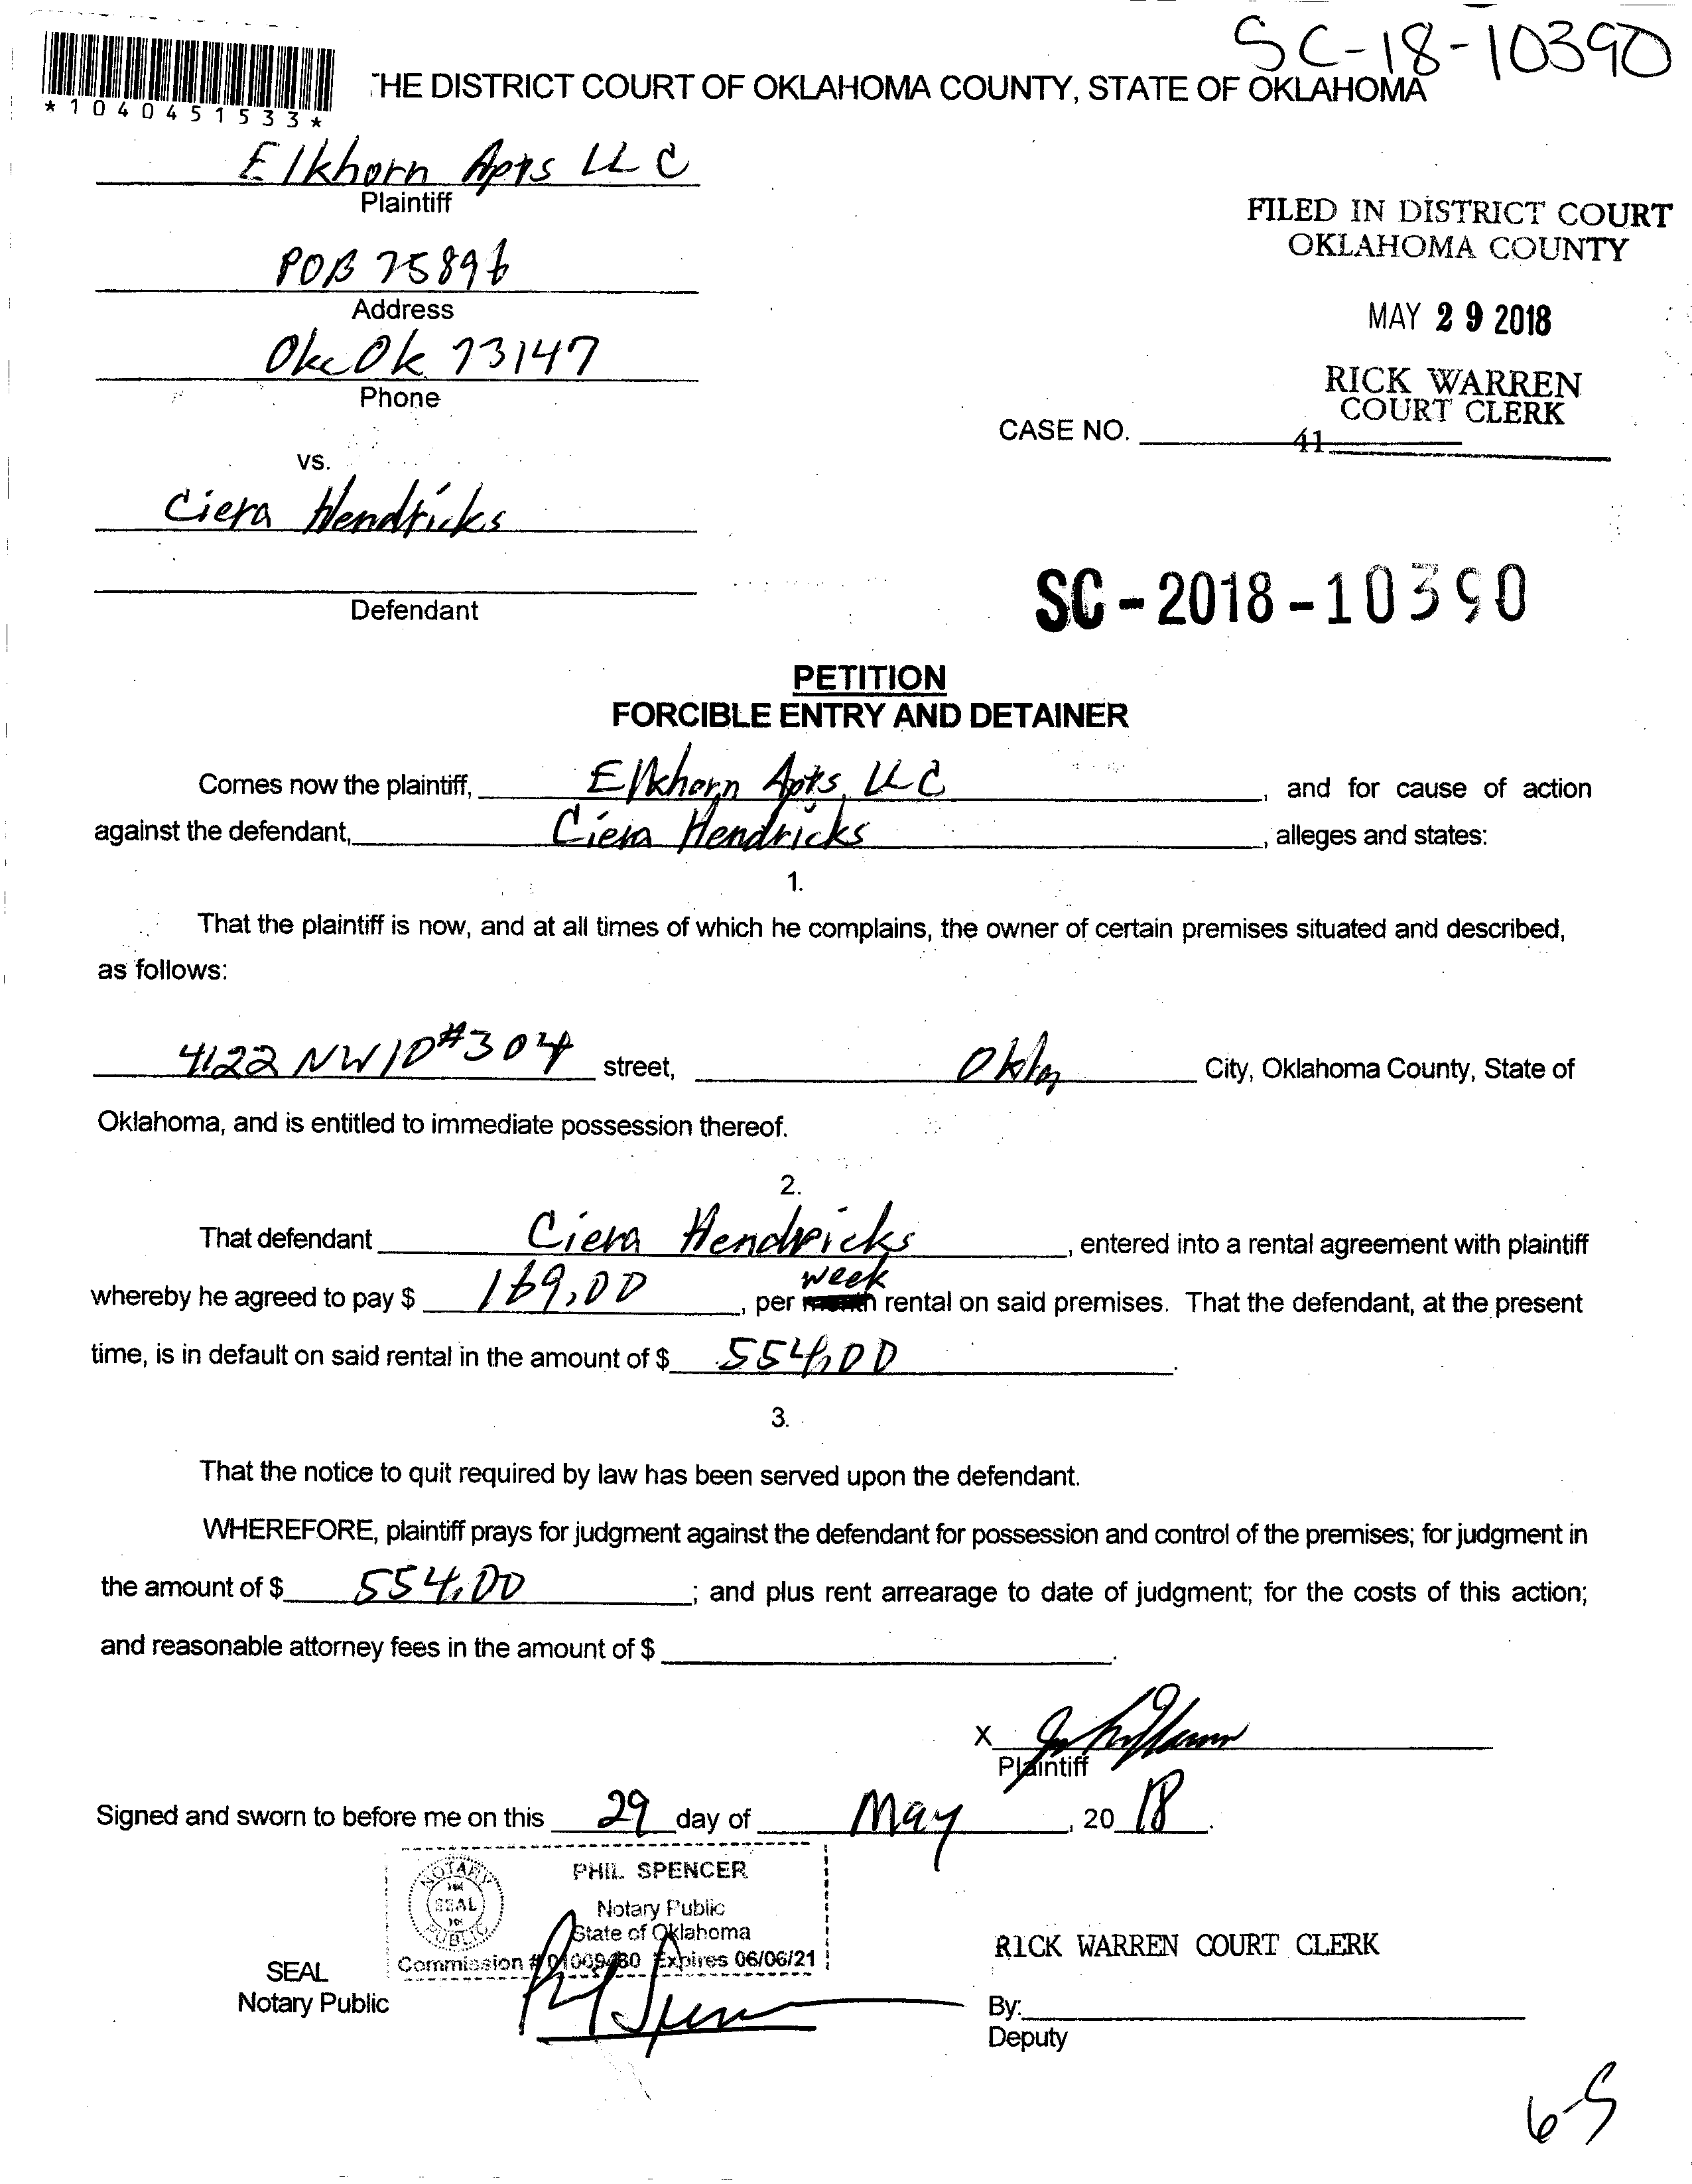 SC-18-10390
*1040451533*
THE DISTRICT COURT OF OKLAHOMA COUNTY, STATE OF OKLAHOMA
Elkhorn Apts LLC
Plaintiff
POB 75896
Address
Okc Ok 73147
Phone
vs.
Ciera Hendricks
Defendant
FILED IN DISTRICT COURT
OKLAHOMA COUNTY
MAY 29 2018
RICK WARREN
COURT CLERK
CASE NO. 41
SC-2018-10390
PETITION
FORCIBLE ENTRY AND DETAINER
Comes now the plaintiff, Elkhorn Apts, LLC, and for cause of action
against the defendant, Ciera Hendricks, alleges and states:
1.
That the plaintiff is now, and at all times of which he complains, the owner of certain premises situated and described,
as follows:
4122 NW 10 #304 street, Okla City, Oklahoma County, State of
Oklahoma, and is entitled to immediate possession thereof.
2.
That defendant Ciera Hendricks, entered into a rental agreement with plaintiff
whereby he agreed to pay $ 169.00, per week rental on said premises. That the defendant, at the present
time, is in default on said rental in the amount of $ 554.00.
3.
That the notice to quit required by law has been served upon the defendant.
WHEREFORE, plaintiff prays for judgment against the defendant for possession and control of the premises; for judgment in
the amount of $ 554.00; and plus rent arrearage to date of judgment; for the costs of this action;
and reasonable attorney fees in the amount of $ .
X
Plaintiff
Signed and sworn to before me on this 29 day of May, 20 18.
NOTARY
SEAL
PUBLIC
PHIL SPENCER
Notary Public
State of Oklahoma
Commission # 01009480 Expires 06/06/21
SEAL
Notary Public
RICK WARREN COURT CLERK
By:
Deputy
6-5